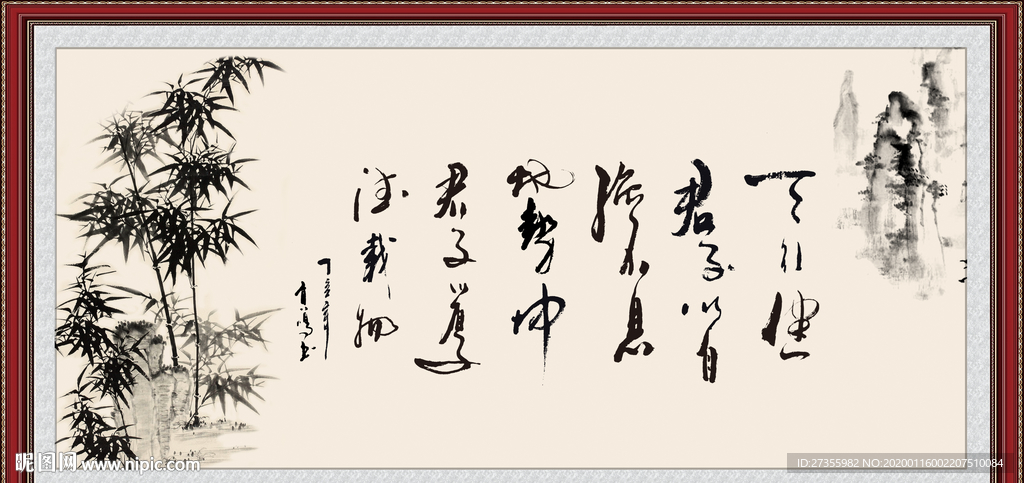 天行健
君子以自
强不息
地势坤
君子以厚
德载物
丁亥年
昵图网 www.nipic.com
ID:27355982 NO:20200116002207510084